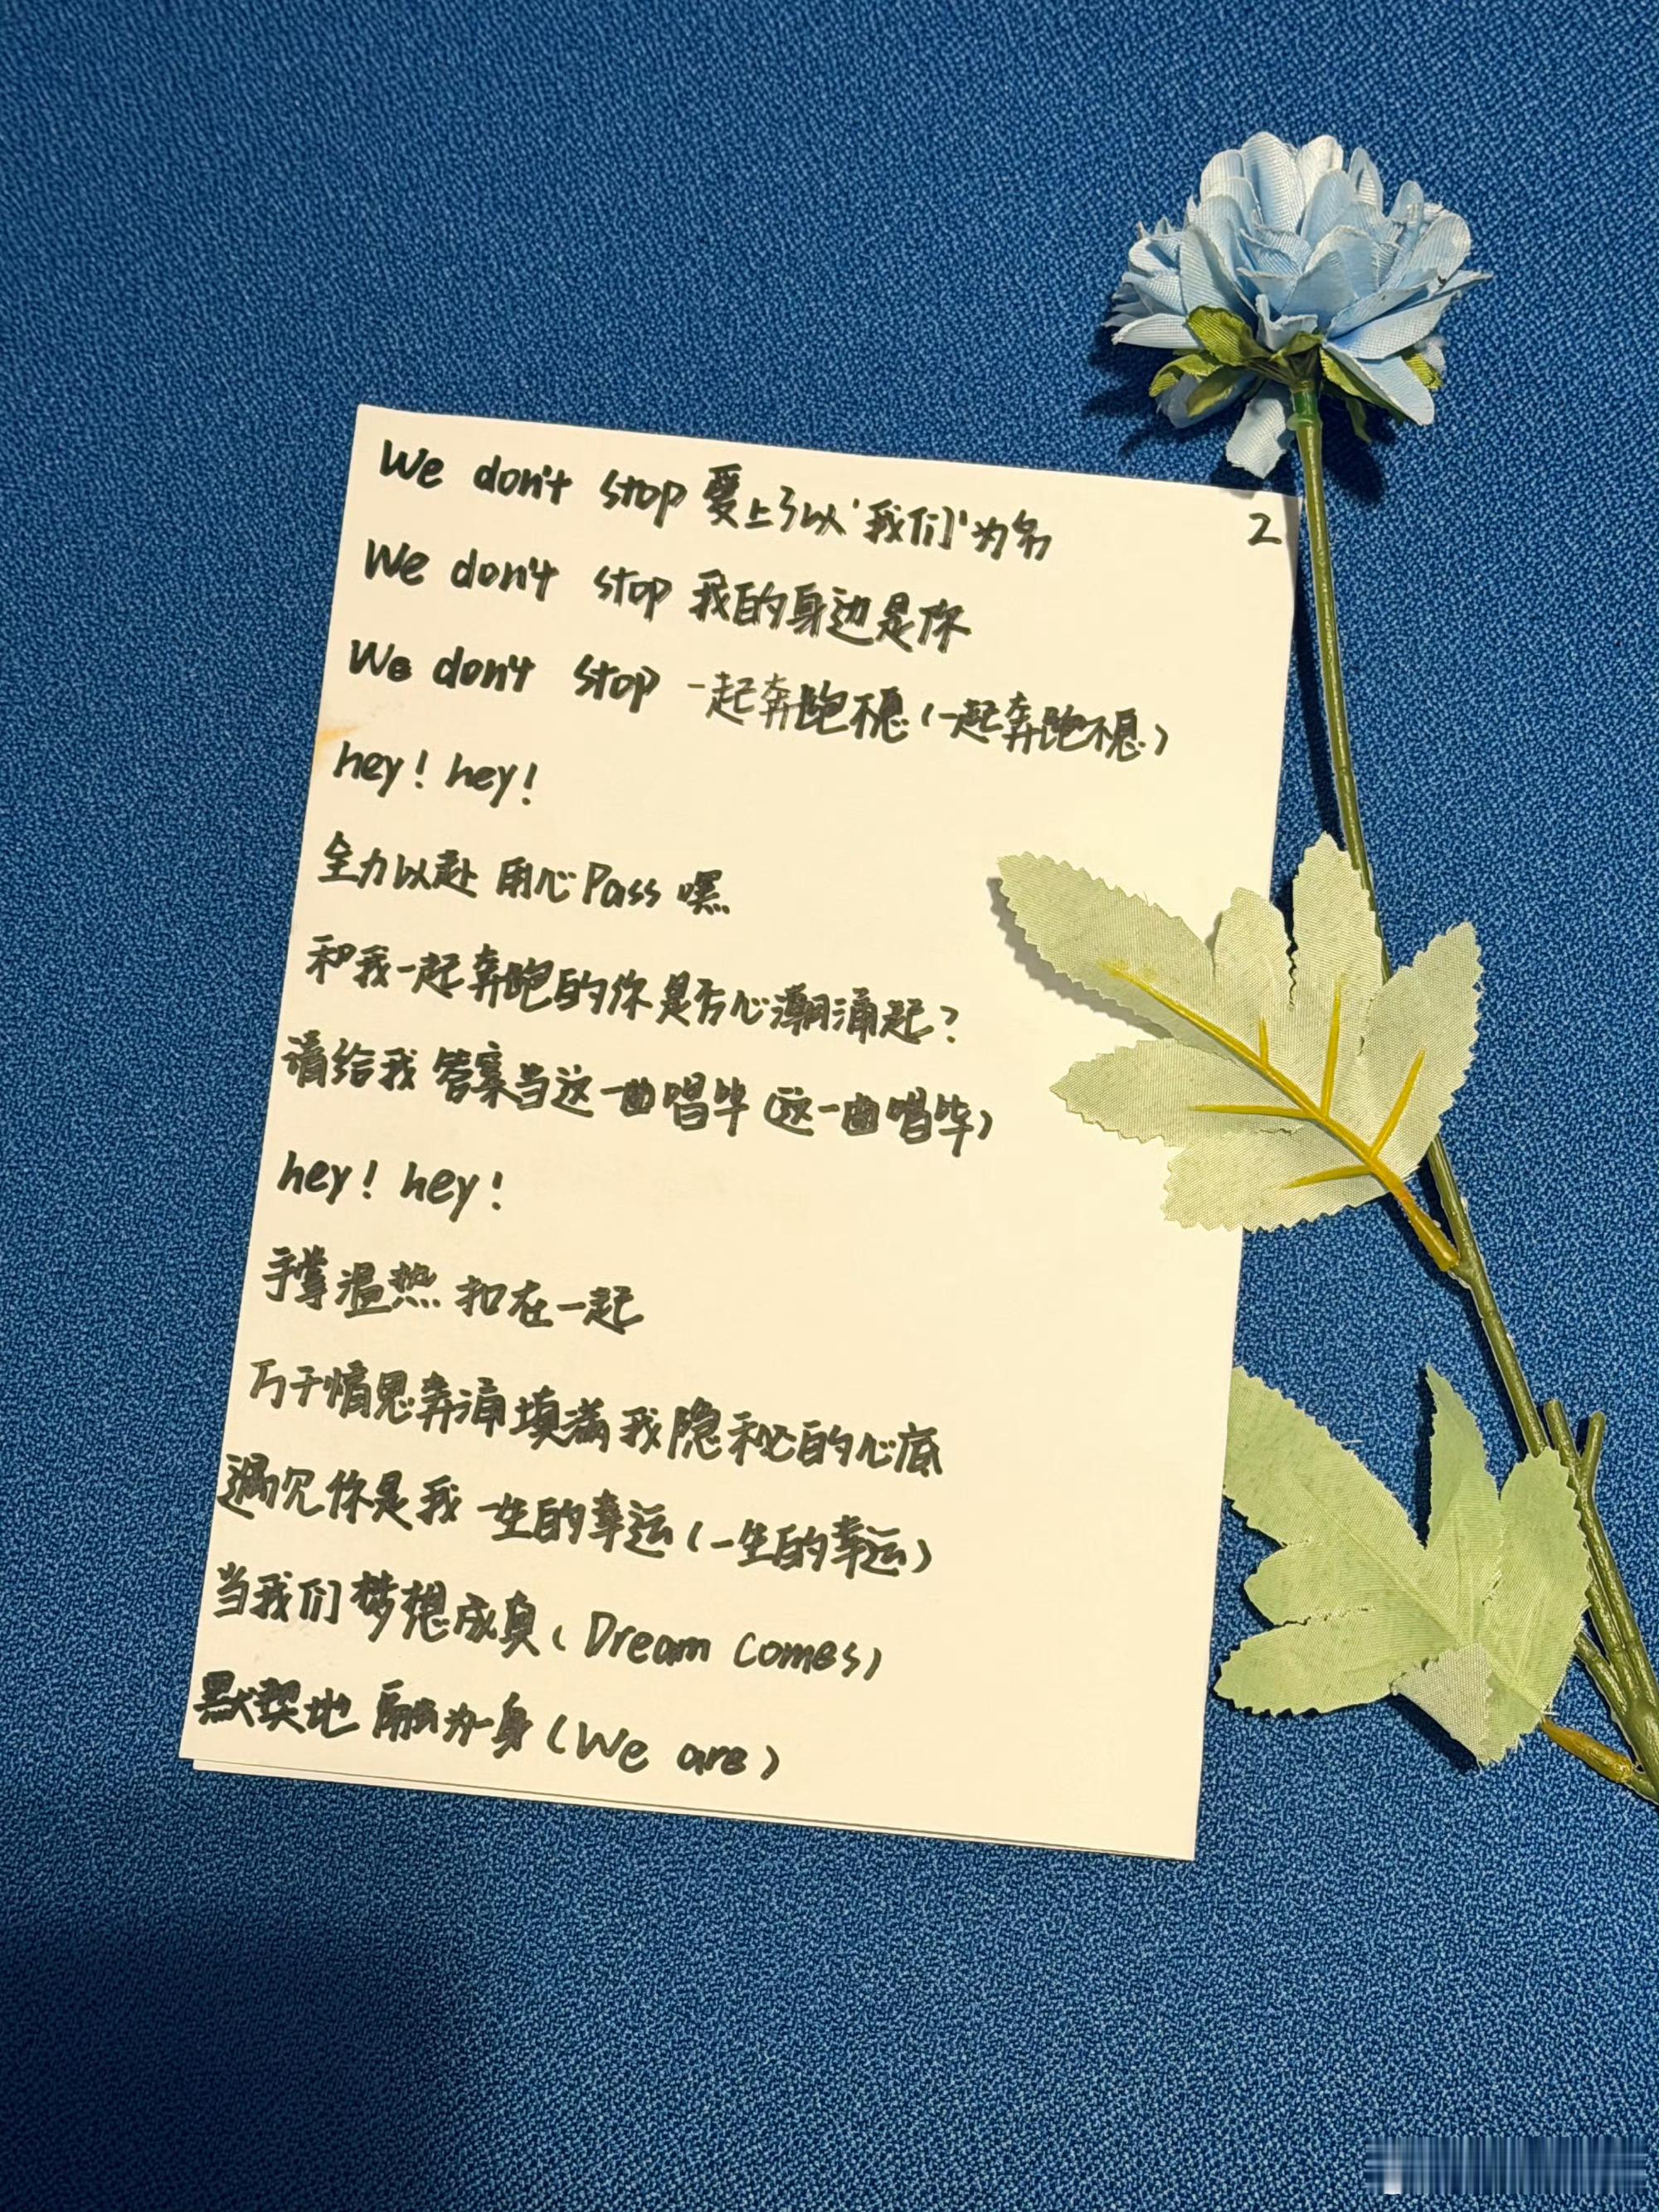 We don't stop 爱上了以‘我们’为名
2
We don't stop 我的身边是你
We don't stop 一起奔跑不息（一起奔跑不息）
hey！hey！
全力以赴 用心Pass 嘿
和我一起奔跑的你是否心潮涌起？
请给我答案当这一曲唱毕（这一曲唱毕）
hey！hey！
手掌温热 扣在一起
万千情思奔涌填满我隐秘的心底
遇见你是我一生的幸运（一生的幸运）
当我们梦想成真（Dream comes）
默契地融为一身（We are）